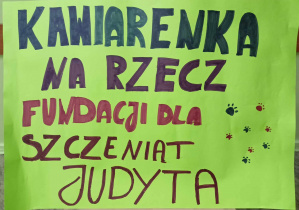 KAWIARENKA
NA RZECZ
FUNDACJI DLA
SZCZENIAT
JUDYTA